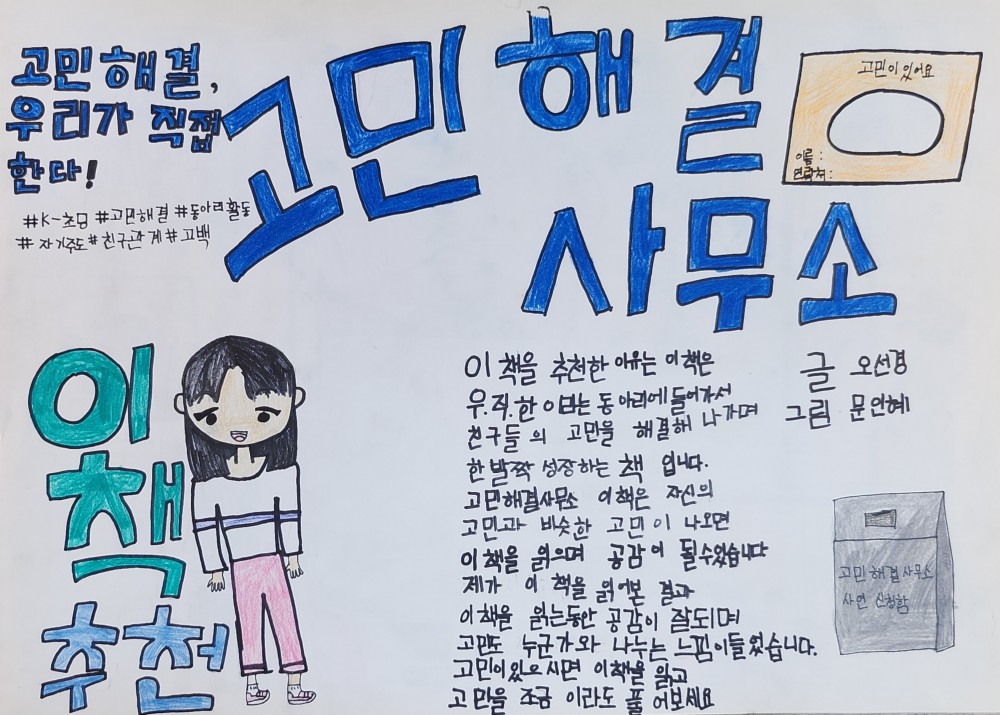 고민해결,
우리가 직접
한다!
#K-초딩 #고민해결 #동아리활동
#자기주도 #친구관계 #고백
고민해결
사무소
고민이 있어요
이름 :
연락처 :
이
책
추천
이 책을 추천한 이유는 이 책은
우.직.한 이라는 동아리에 들어가서
친구들의 고민을 해결해 나가며
한발짝 성장하는 책 입니다.
고민해결사무소 이 책은 자신의
고민과 비슷한 고민이 나오면
이 책을 읽으며 공감이 될수있습니다
제가 이 책을 읽어본 결과
이책을 읽는동안 공감이 잘되며
고민도 누군가와 나누는 느낌이들었습니다.
고민이있으시면 이책을 읽고
고민을 조금이라도 풀어보세요
글 오선경
그림 문인혜
고민해결사무소
사연 신청함